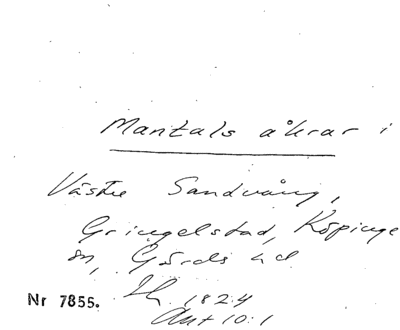 Mantals åkrar i
Västre Sandvång,
Gringelstad, Köpinge
sn, Gärds hd
Nr 7855.
1824
Aut 10:1